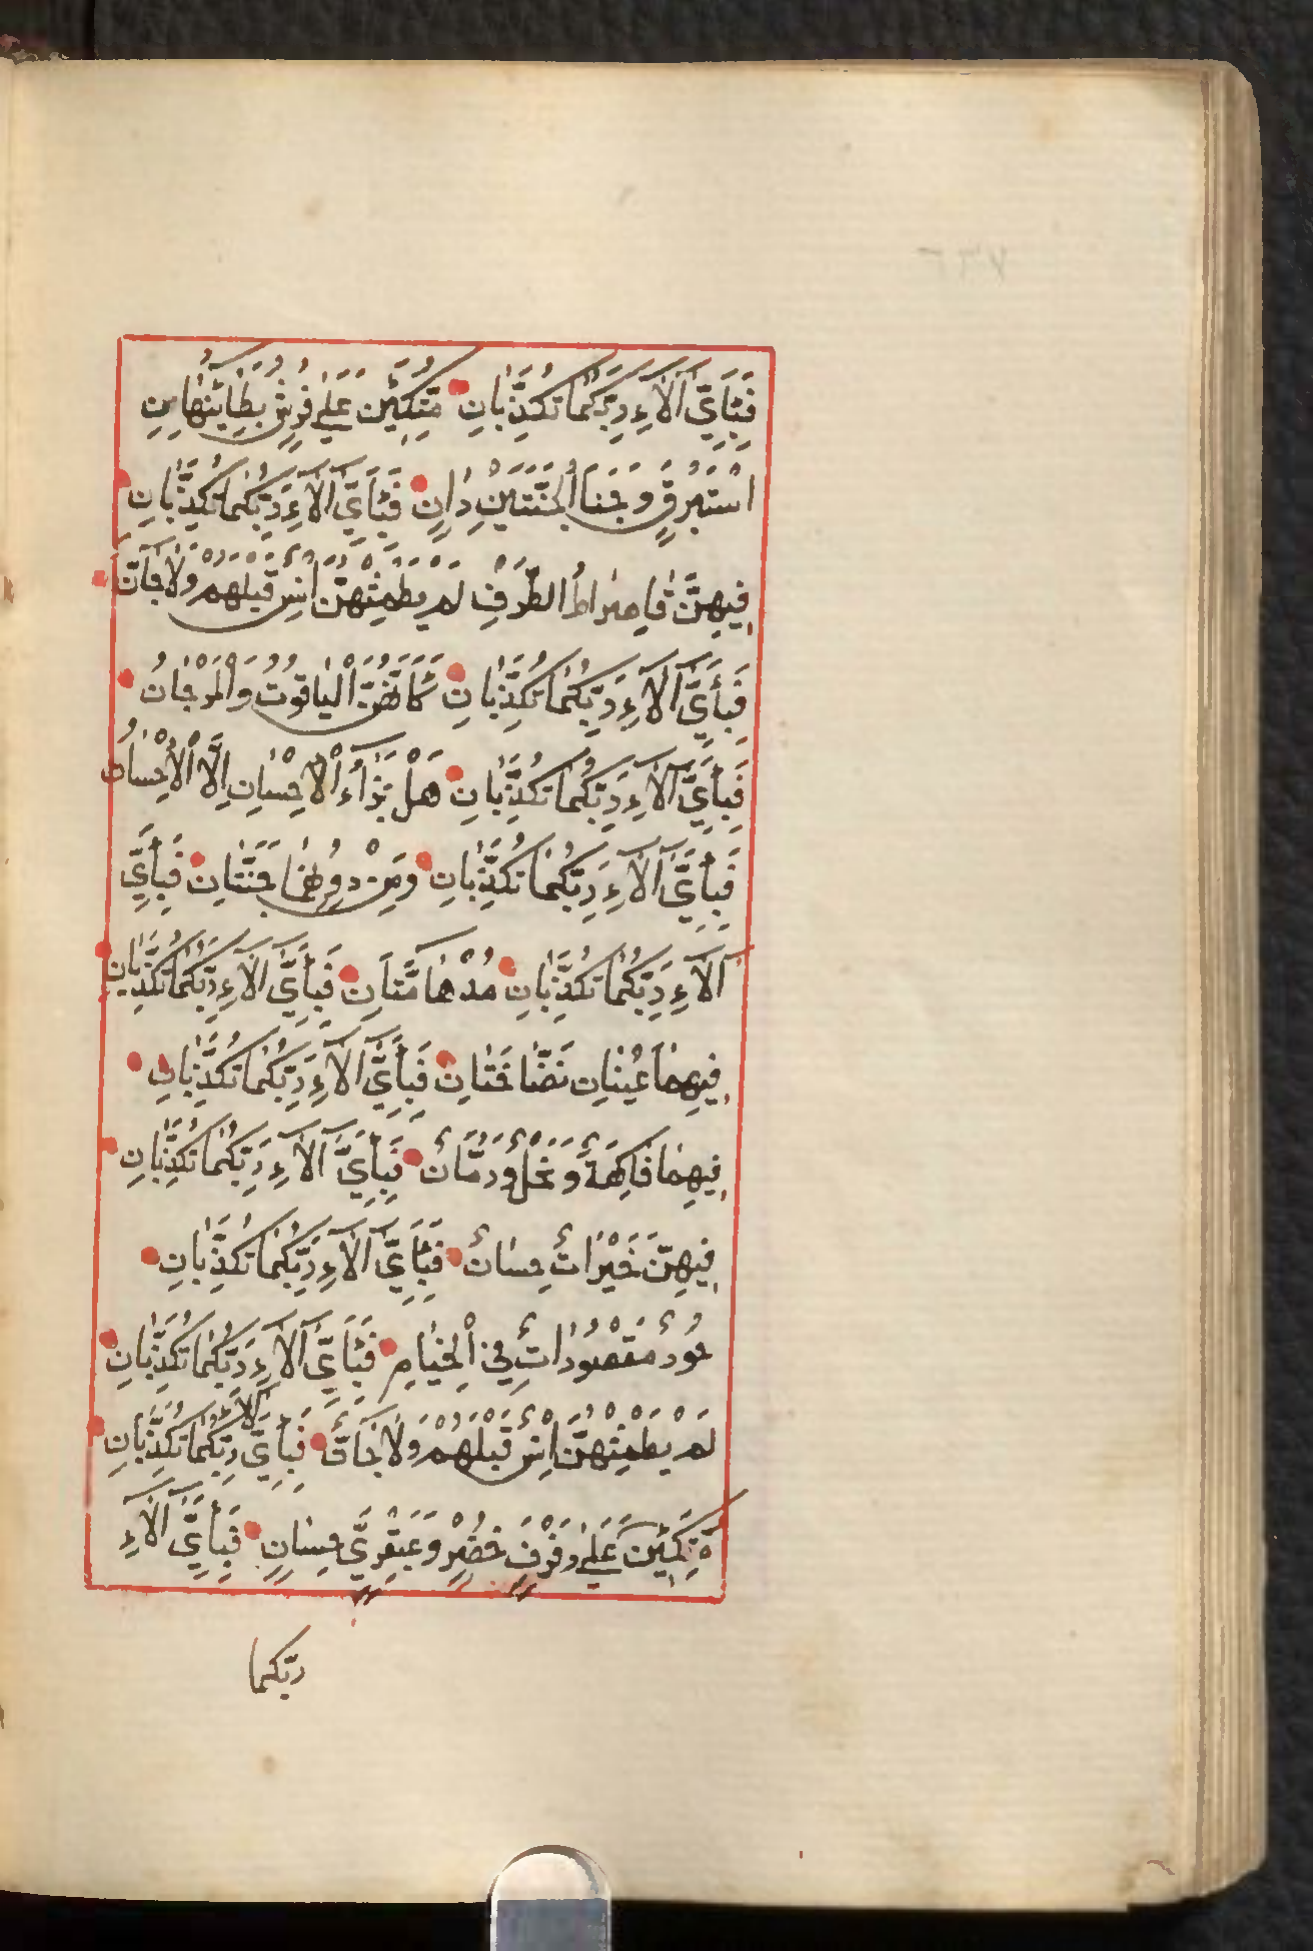 فَبِأَيِّ آلَاءِ رَبِّكُمَا تُكَذِّبَانِ مُتَّكِئِينَ عَلَى فُرُشٍ بَطَائِنُهَا مِنْ
اسْتَبْرَقٍ وَجَنَا الْجَنَّتَيْنِ دَانٍ فَبِأَيِّ آلَاءِ رَبِّكُمَا تُكَذِّبَانِ
فِيهِنَّ قَاصِرَاطُ الطَّرْفِ لَمْ يَطْمِثْهُنَّ إِنْسٌ قَبْلَهُمْ وَلَا جَانٌّ
فَبِأَيِّ آلَاءِ رَبِّكُمَا تُكَذِّبَانِ كَأَنَّهُنَّ الْيَاقُوتُ وَالْمَرْجَانُ
فَبِأَيِّ آلَاءِ رَبِّكُمَا تُكَذِّبَانِ هَلْ جَزَاءُ الْإِحْسَانِ إِلَّا الْإِحْسَانُ
فَبِأَيِّ آلَاءِ رَبِّكُمَا تُكَذِّبَانِ وَمِنْ دُونِهِمَا جَنَّتَانِ فَبِأَيِّ
آلَاءِ رَبِّكُمَا تُكَذِّبَانِ مُدْهَامَّتَانِ فَبِأَيِّ آلَاءِ رَبِّكُمَا تُكَذِّبَانِ
فِيهِمَا عَيْنَانِ نَضَّاخَتَانِ فَبِأَيِّ آلَاءِ رَبِّكُمَا تُكَذِّبَانِ
فِيهِمَا فَاكِهَةٌ وَنَخْلٌ وَرُمَّانٌ فَبِأَيِّ آلَاءِ رَبِّكُمَا تُكَذِّبَانِ
فِيهِنَّ خَيْرَاتٌ حِسَانٌ فَبِأَيِّ آلَاءِ رَبِّكُمَا تُكَذِّبَانِ
حُورٌ مَقْصُورَاتٌ فِي الْخِيَامِ فَبِأَيِّ آلَاءِ رَبِّكُمَا تُكَذِّبَانِ
لَمْ يَطْمِثْهُنَّ إِنْسٌ قَبْلَهُمْ وَلَا جَانٌّ فَبِأَيِّ آلَاءِ رَبِّكُمَا تُكَذِّبَانِ
مُتَّكِئِينَ عَلَى رَفْرَفٍ خُضْرٍ وَعَبْقَرِيٍّ حِسَانٍ فَبِأَيِّ آلَاءِ
ربّكما